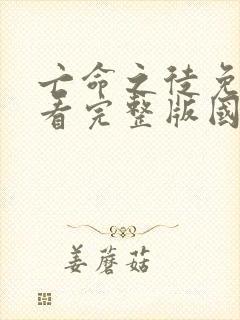 亡命之徒免
看完整版國
姜蘑菇